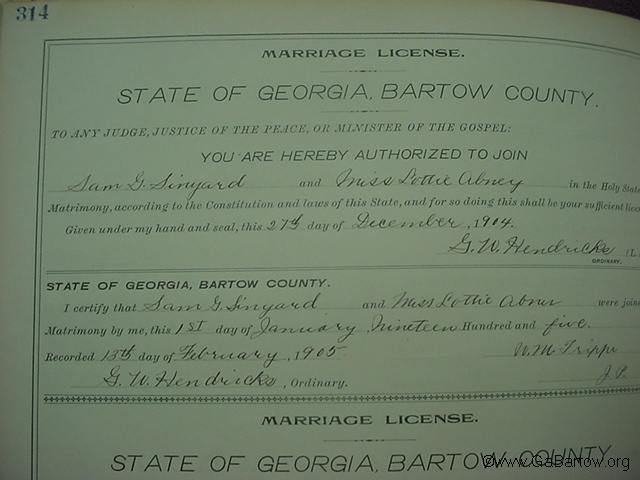 314
MARRIAGE LICENSE.
STATE OF GEORGIA, BARTOW COUNTY.
TO ANY JUDGE, JUSTICE OF THE PEACE, OR MINISTER OF THE GOSPEL:
YOU ARE HEREBY AUTHORIZED TO JOIN
Sam G. Sinyard and Miss Lottie Abney in the Holy State
Matrimony, according to the Constitution and laws of this State, and for so doing this shall be your sufficient lice
Given under my hand and seal, this 27th day of December, 1904.
G. W. Hendricks (L.
ORDINARY.
STATE OF GEORGIA, BARTOW COUNTY.
I certify that Sam G. Sinyard and Miss Lottie Abner were join
Matrimony by me, this 1st day of January, Nineteen Hundred and five.
Recorded 13th day of February, 1905. W. M. Trippe
G. W. Hendricks, Ordinary. J. P.
MARRIAGE LICENSE.
STATE OF GEORGIA, BARTOW COUNTY.
©www.GaBartow.org